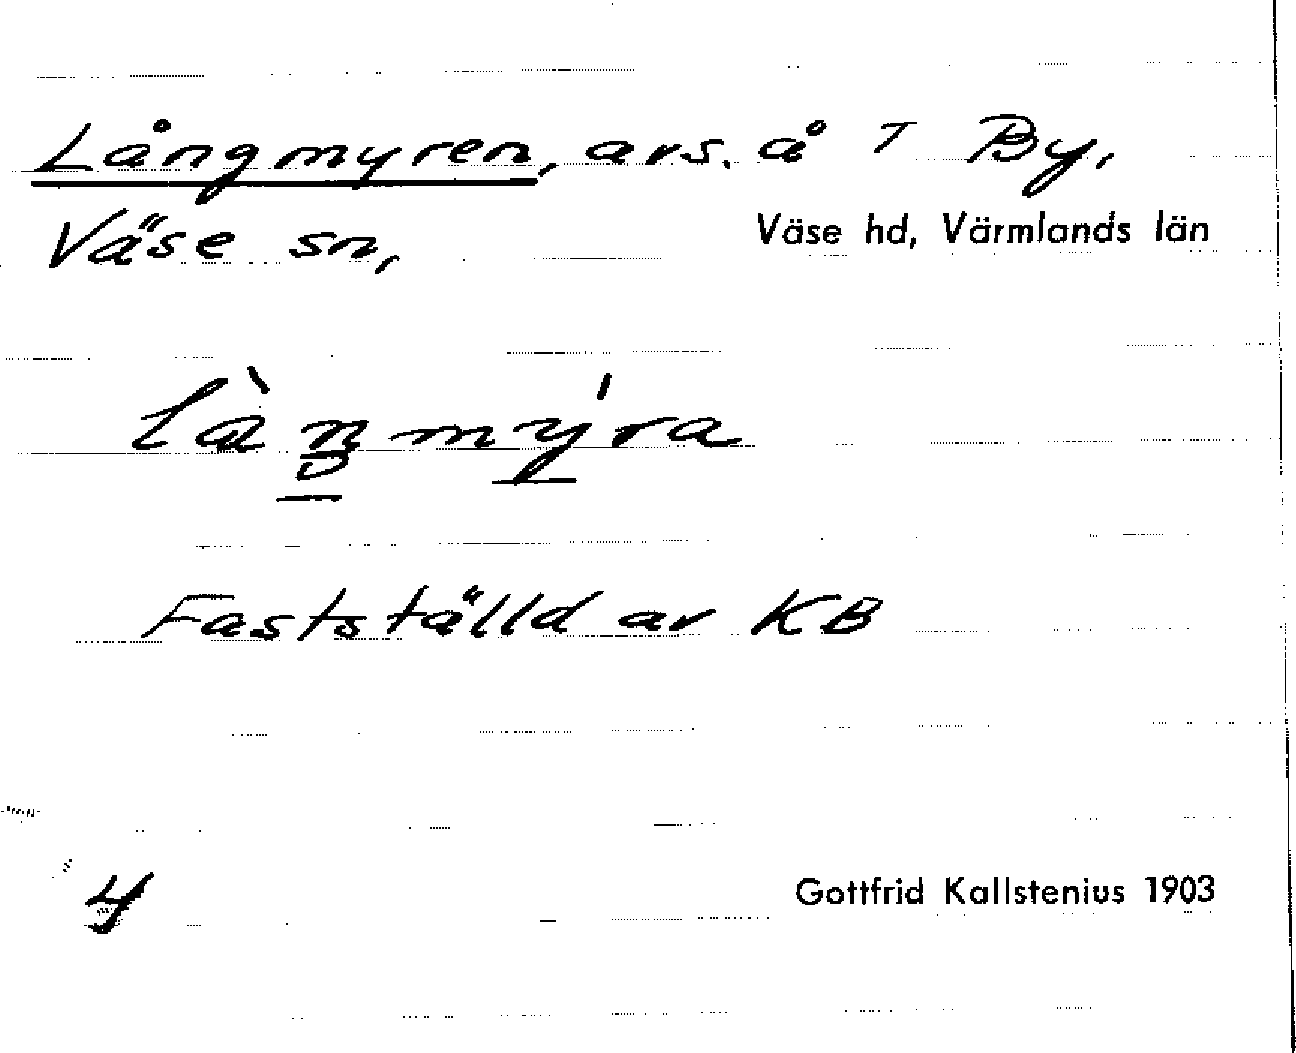 Långmyren, avs. å T By,
Väse sn, Väse hd, Värmlands län
làŋmý̱ra
Fastställd av KB
Gottfrid Kallstenius 1903